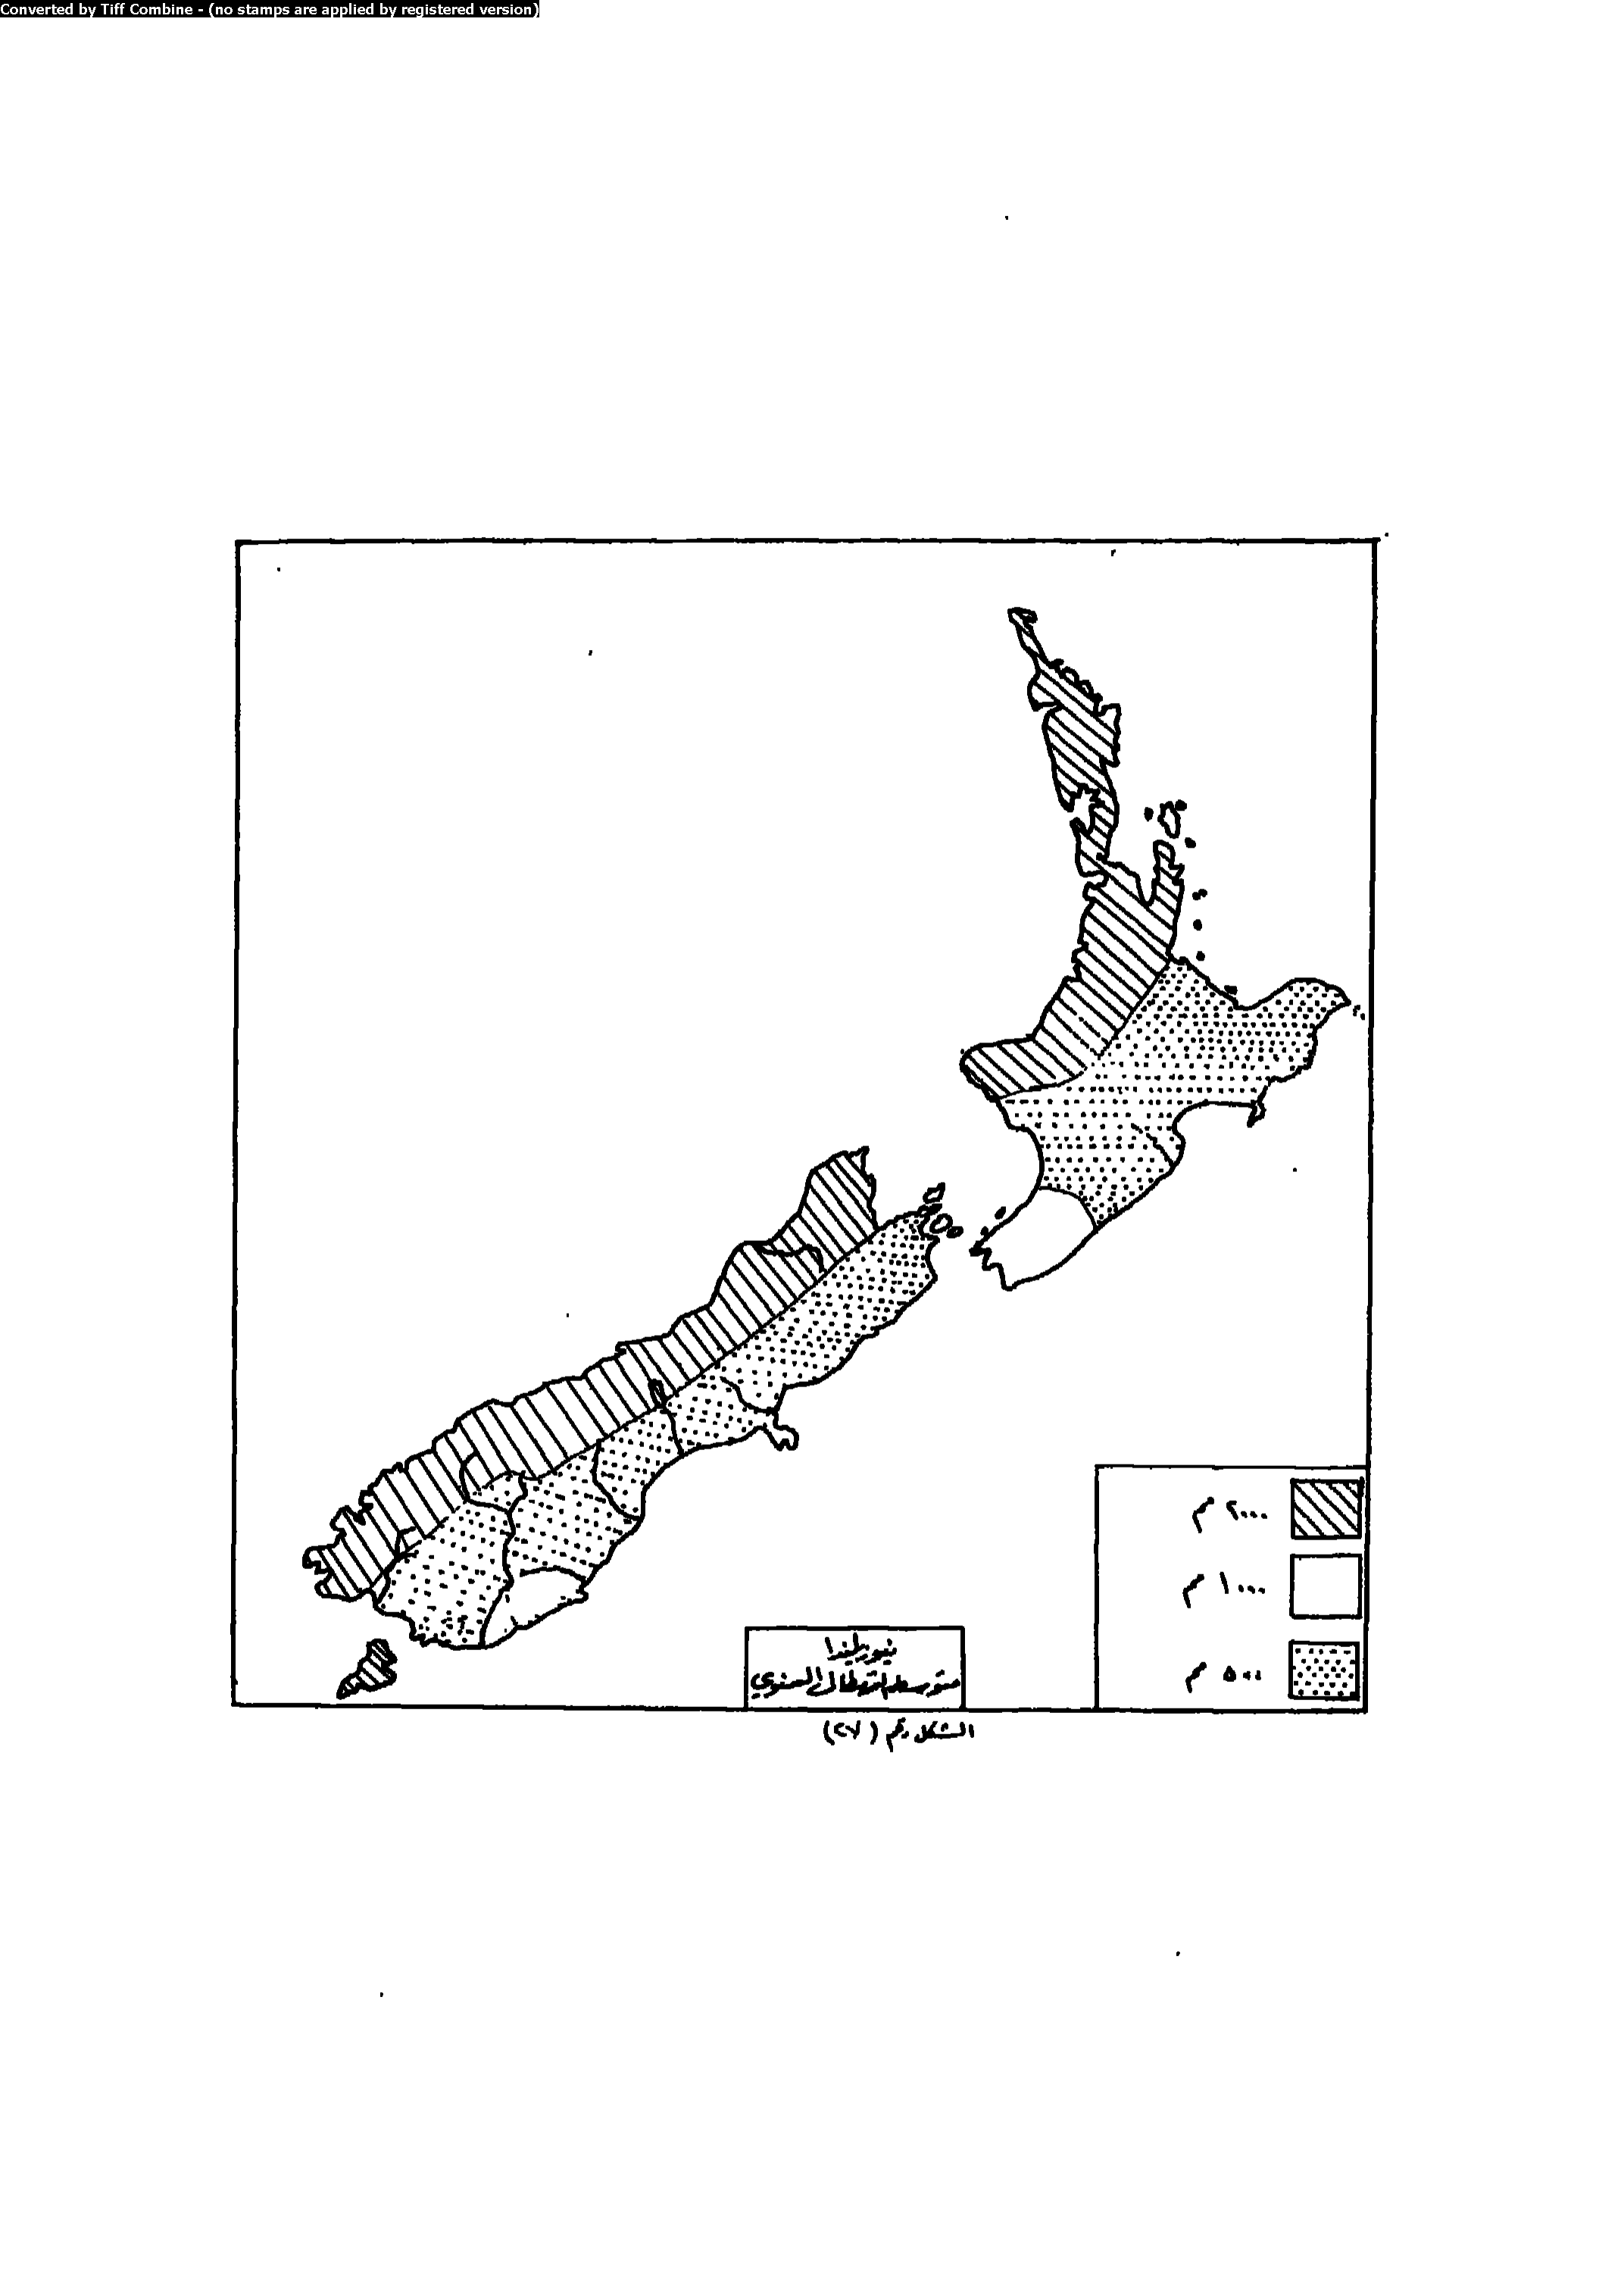 Converted by Tiff Combine - (no stamps are applied by registered version)
٢٠٠٠ م
١٠٠٠ م
٥٠٠ م
نيوزيلندا
متوسط الأمطار السنوى
الشكل رقم (٢٧)